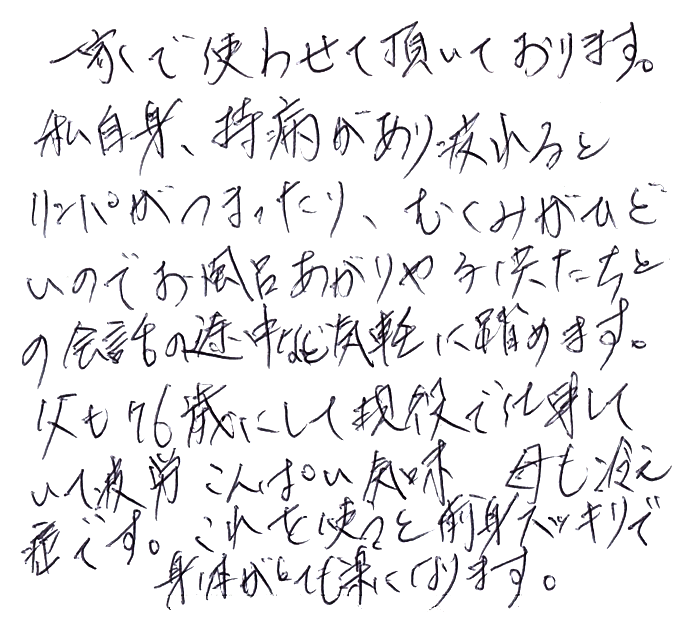 家で使わせて頂いております。
私自身、持病があり疲れると
リンパがつまったり、むくみがひど
いのでお風呂あがりや子供たちと
の会話の途中など気軽に踏めます。
父も76歳にして現役で仕事して
いて疲労こんぱい気味 母も冷え
症です。これを使うと全身スッキリで
身体がとても楽になります。